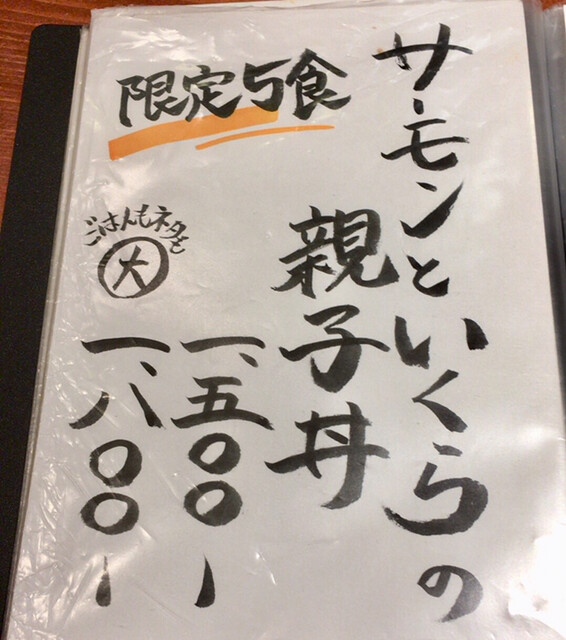 サーモンといくらの
親子丼
限定5食
一、五〇〇-
ごはんもネタも
大
一、八〇〇-